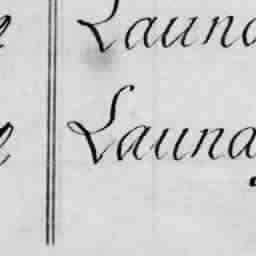 Launa
Launa